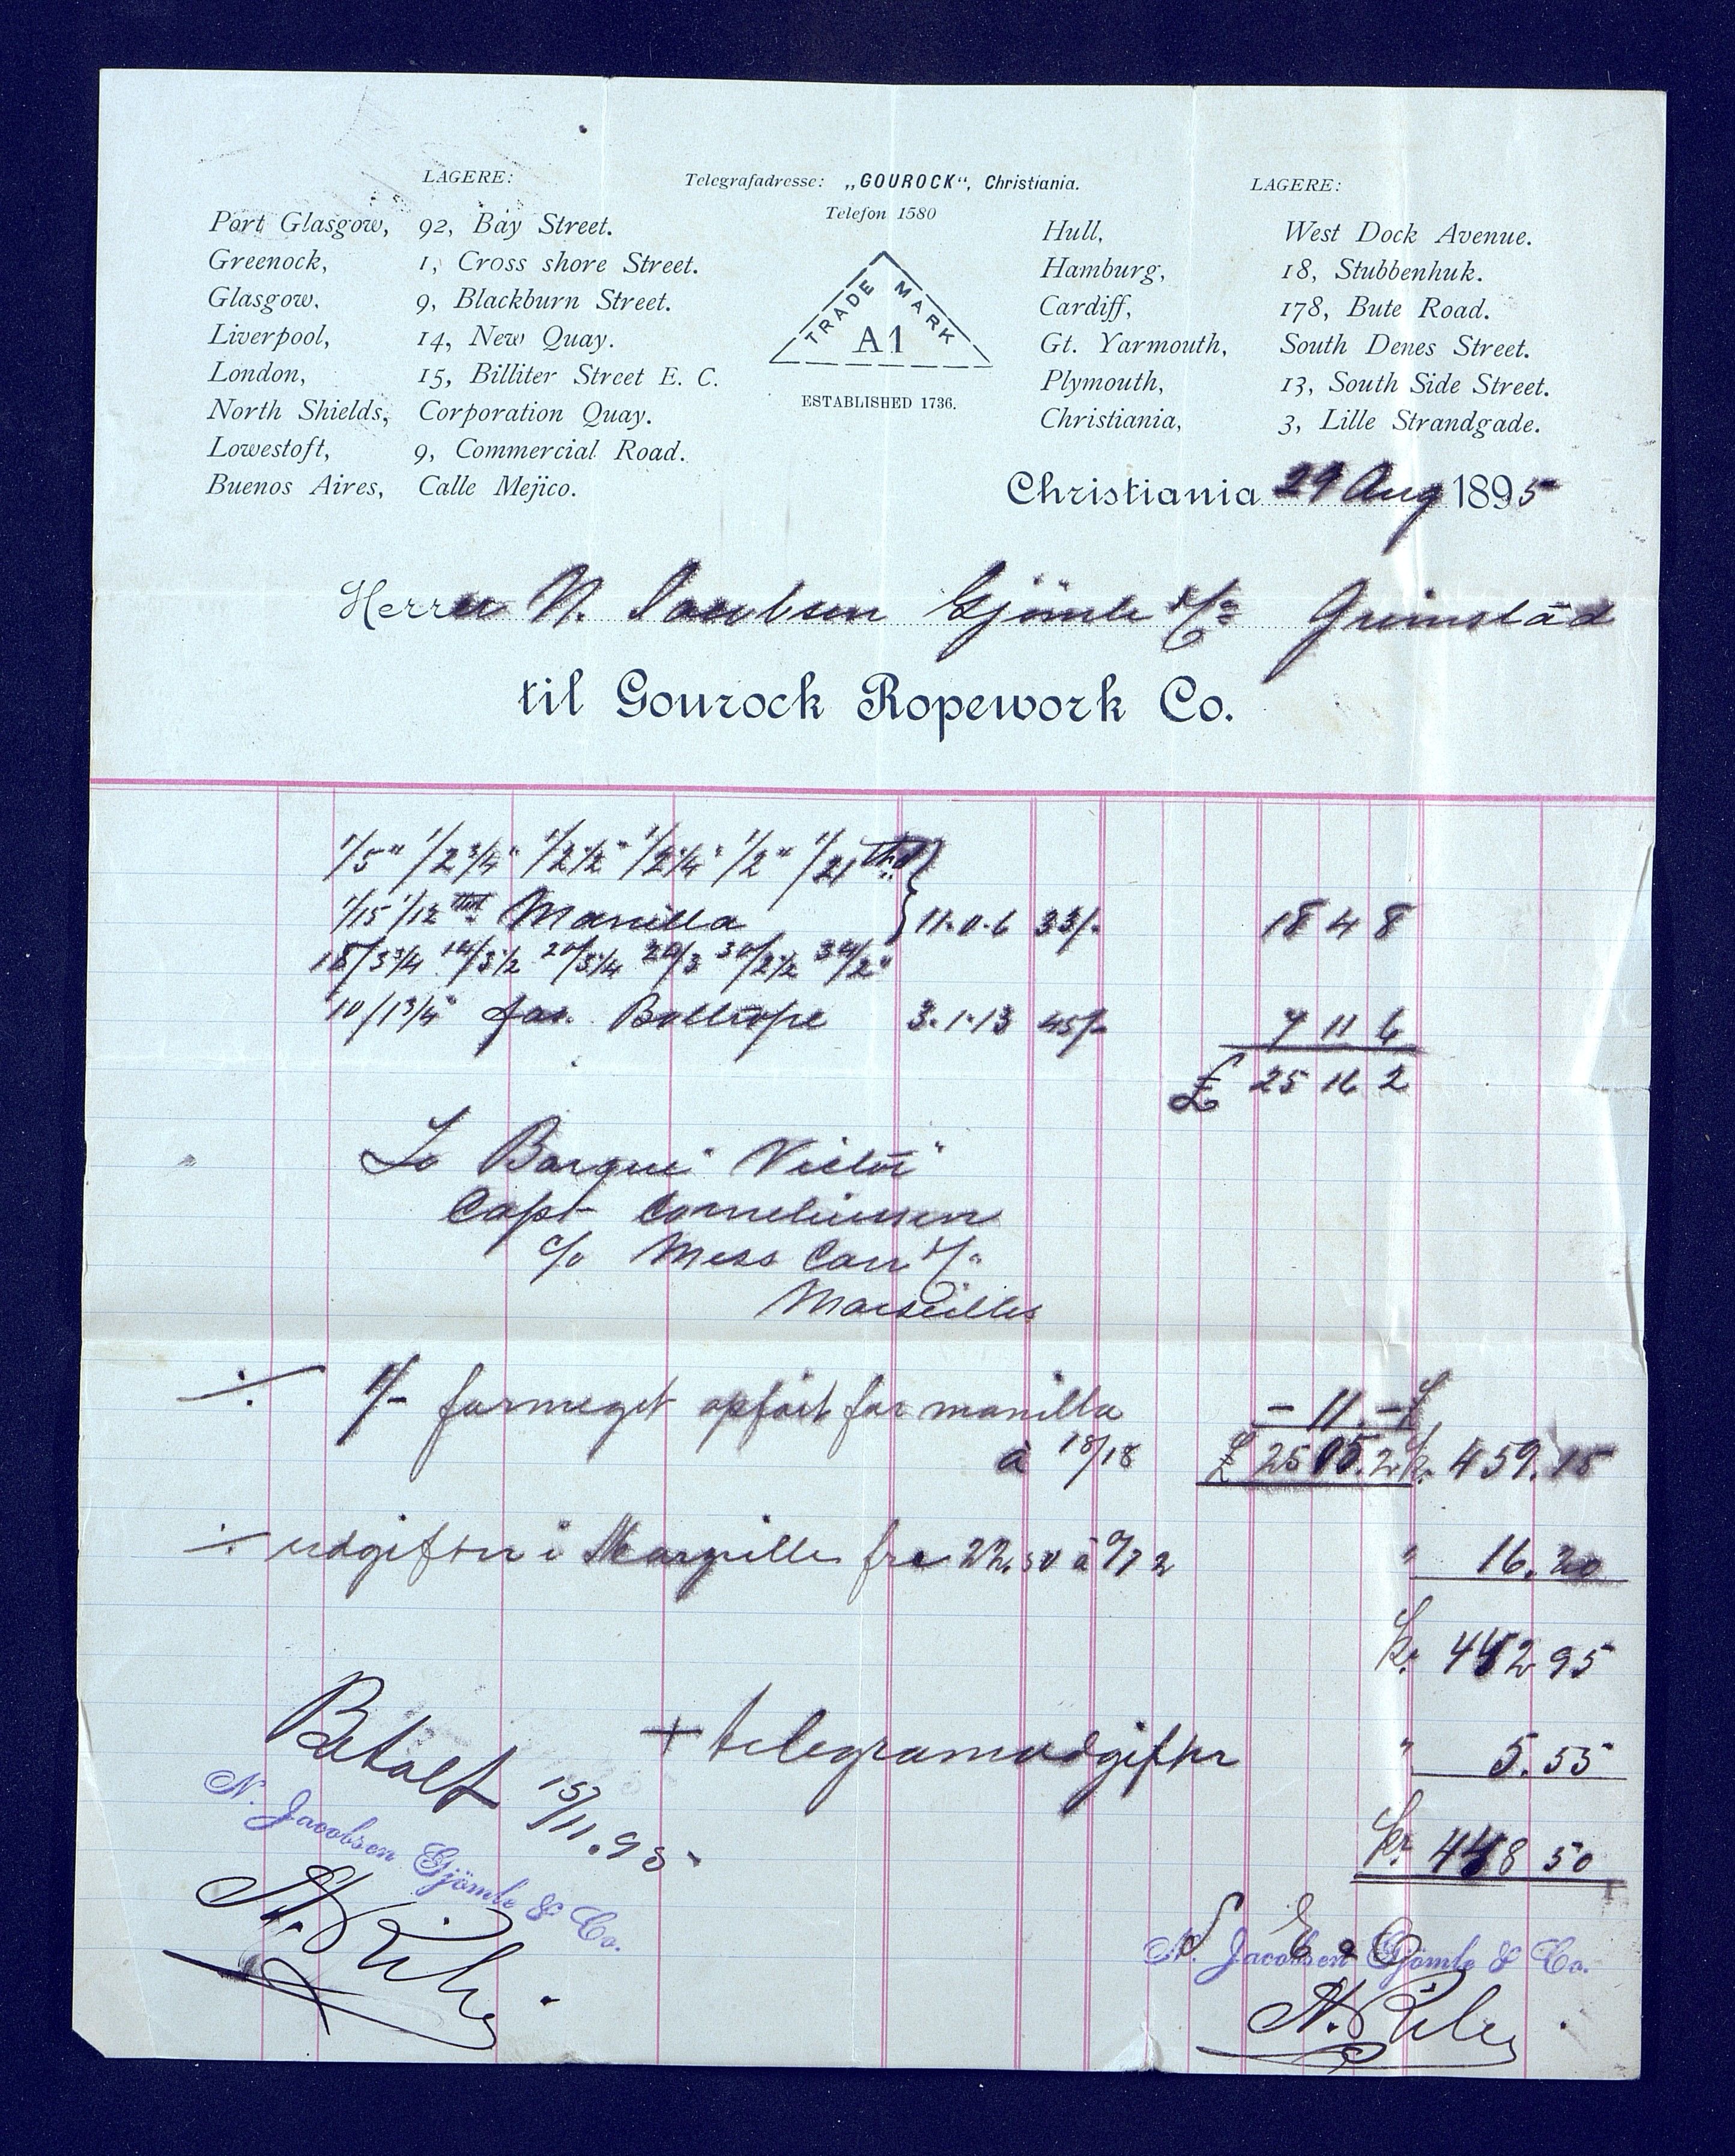 LAGERE:
Port Glasgow, 92, Bay Street.
Greenock, 1, Cross shore Street.
Glasgow, 9, Blackburn Street.
Liverpool, 14, New Quay.
London, 15, Billiter Street E. C.
North Shields, Corporation Quay.
Lowestoft, 9, Commercial Road.
Buenos Aires, Calle Mejico.
Telegrafadresse: „GOUROCK“, Christiania.
Telefon 1580
TRADE MARK
A1
ESTABLISHED 1736.
LAGERE:
Hull, West Dock Avenue.
Hamburg, 18, Stubbenhuk.
Cardiff, 178, Bute Road.
Gt. Yarmouth, South Denes Street.
Plymouth, 13, South Side Street.
Christiania, 3, Lille Strandgade.
Christiania 29 Aug 1895
Herrer N. Jacobsen Gjömle & Co Grimstad
til Gourock Ropework Co.
1/5" 1/2 3/4" 1/2 1/2" 1/2 1/4" 1/2" 1/21 thd
1/15 1/12 thd Manilla 11.0.6 33/- 18 4 8
18/3 3/4 14/3 1/2 20/3 1/4 20/3 30/2 1/2 34/2"
10/1 3/4" Boltrope 3.1.13 45/- 7 11 6
£ 25 16 2
To Barque "Victor"
Capt Corneliussen
c/o Mess Carr & Co
Marseilles
÷ 1/- formeget opført for manilla - 11. -
à 18/18 £ 25 05.2 kr. 459.15
÷ udgifter i Marseilles frc 22.50 à 0/72 " 16.20
kr. 442 95
+ telegramudgifter " 5.55
kr 448 50
Betalt 15/11.95
N. Jacobsen Gjömle & Co.
S E & O
N. Jacobsen Gjömle & Co.